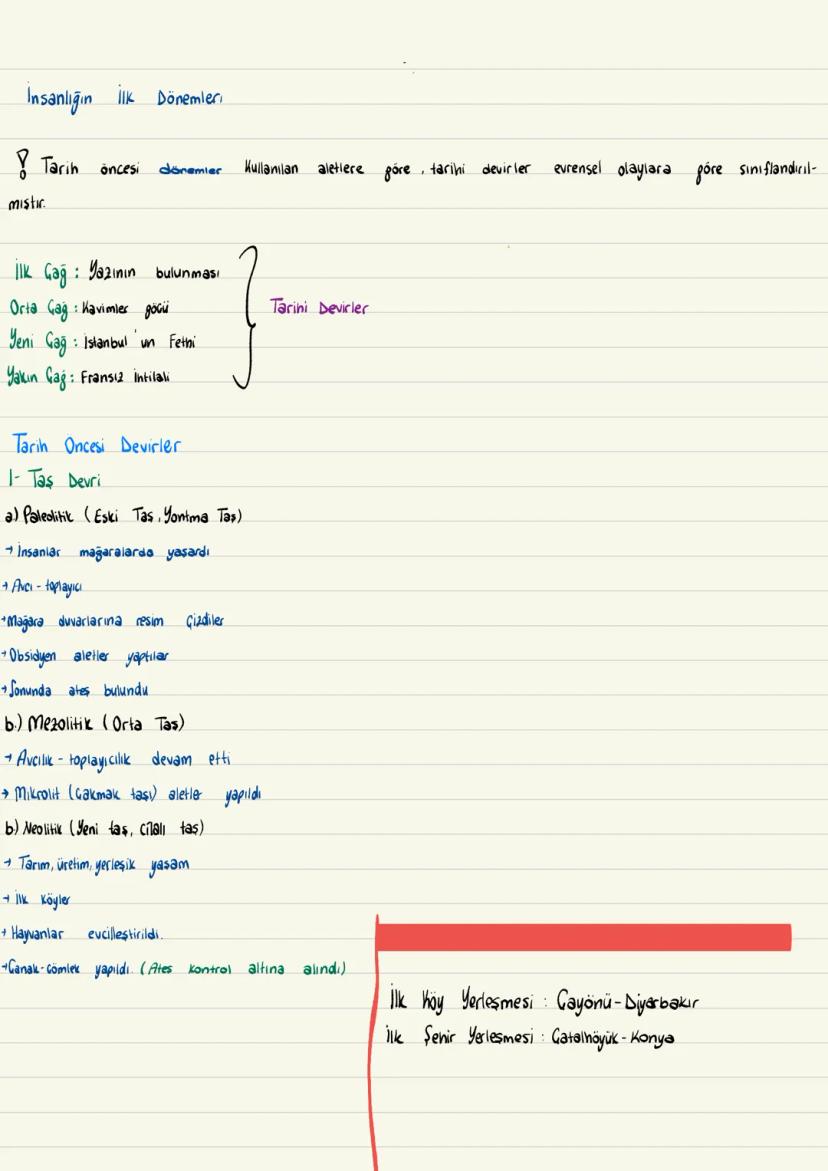 İnsanlığın İlk Dönemleri
! Tarih öncesi dönemler kullanılan aletlere göre, tarihi devirler evrensel olaylara göre sınıflandırıl-
mıştır.
İlk Çağ : Yazının bulunması
Orta Çağ : Kavimler göçü
Tarihi Devirler
Yeni Çağ : İstanbul'un Fethi
Yakın Çağ : Fransız İhtilali
Tarih Öncesi Devirler
1- Taş Devri
a) Paleolitik (Eski Taş, Yontma Taş)
→ İnsanlar mağaralarda yaşardı
→ Avcı - toplayıcı
→ Mağara duvarlarına resim çizdiler
→ Obsidyen aletler yaptılar
→ Sonunda ateş bulundu
b.) Mezolitik (Orta Taş)
→ Avcılık - toplayıcılık devam etti
→ Mikrolit (Çakmak taşı) aletler yapıldı
b) Neolitik (Yeni taş, cilalı taş)
→ Tarım, üretim, yerleşik yaşam
→ İlk köyler
→ Hayvanlar evcilleştirildi.
→ Çanak-Çömlek yapıldı. (Ateş kontrol altına alındı)
İlk Köy Yerleşmesi : Çayönü - Diyarbakır
İlk Şehir Yerleşmesi : Çatalhöyük - Konya